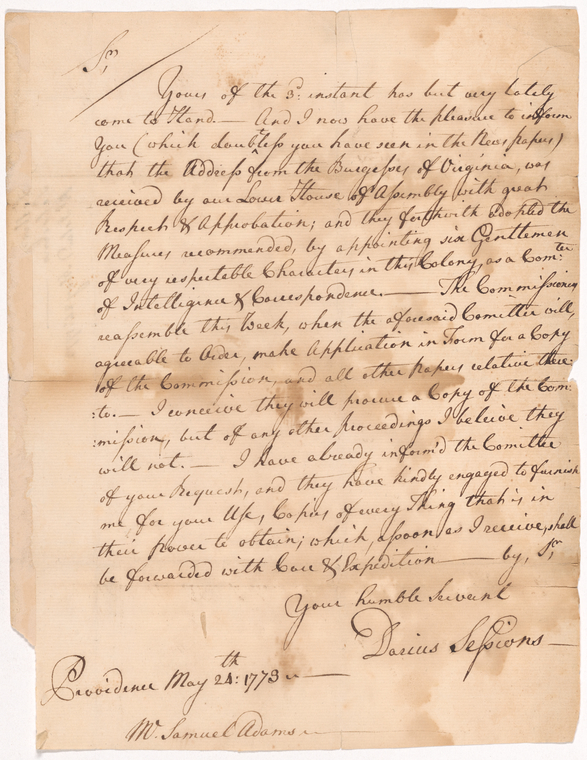 Sr,
Yours of the 3d: instant has but very lately
come to Hand — And I now have the pleasure to inform
You (which doubtless you have seen in the News papers)
that the Address from the Burgesses of Virginia, was
received by our Lower House of Assembly with great
Respect & Approbation; and they forthwith adopted the
Measures recommended, by appointing six Gentlemen
of very respectable Characters in this Colony, as a Comtee
of Intelligence & Correspondence. — The Commissioners
reassemble this Week, when the aforesaid Comittee will,
agreable to Order, make Application in Form for a Copy
of the Commission, and all other Papers relative there:
:to. — I conceive they will procure a Copy of the Com:
:mission, but of any other proceedings I beleive they
will not. — I have already inform'd the Comittee
of your Request, and they have kindly engaged to furnish
me for your Use, Copies of every Thing that is in
their power to obtain; which, assoon as I receive, shall
be forwarded with Care & Expedition — by, Sr,
Your humble Servant
Darius Sessions —
Providence May 24th: 1773 —
Mr. Samuel Adams —